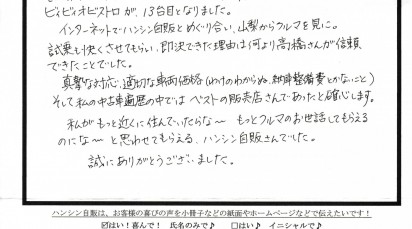 ビビオビストロが、13台目となりました。
インターネットでハンシン自販とめぐり逢い、山梨からクルマを見に。
試乗も快くさせてもらい、即決できた理由は何より高橋さんが信頼
できたことでした。
真摯な対応、適切な車両価格(わけのわからぬ、納車整備費とかないこと)
そして私の中古車遍歴の中では ベストの販売店さんであったと確心します。
私がもっと近くに住んでいたらな〜 もっとクルマのお世話してもらえる
のにな〜 と思わせてもらえる、ハンシン自販さんでした。
誠にありがとうございました。
ハンシン自販は、お客様の喜びの声を小冊子などの紙面やホームページなどで伝えたいです!
☑はい!喜んで! 氏名のみで♪ □はい! イニシャルで♪